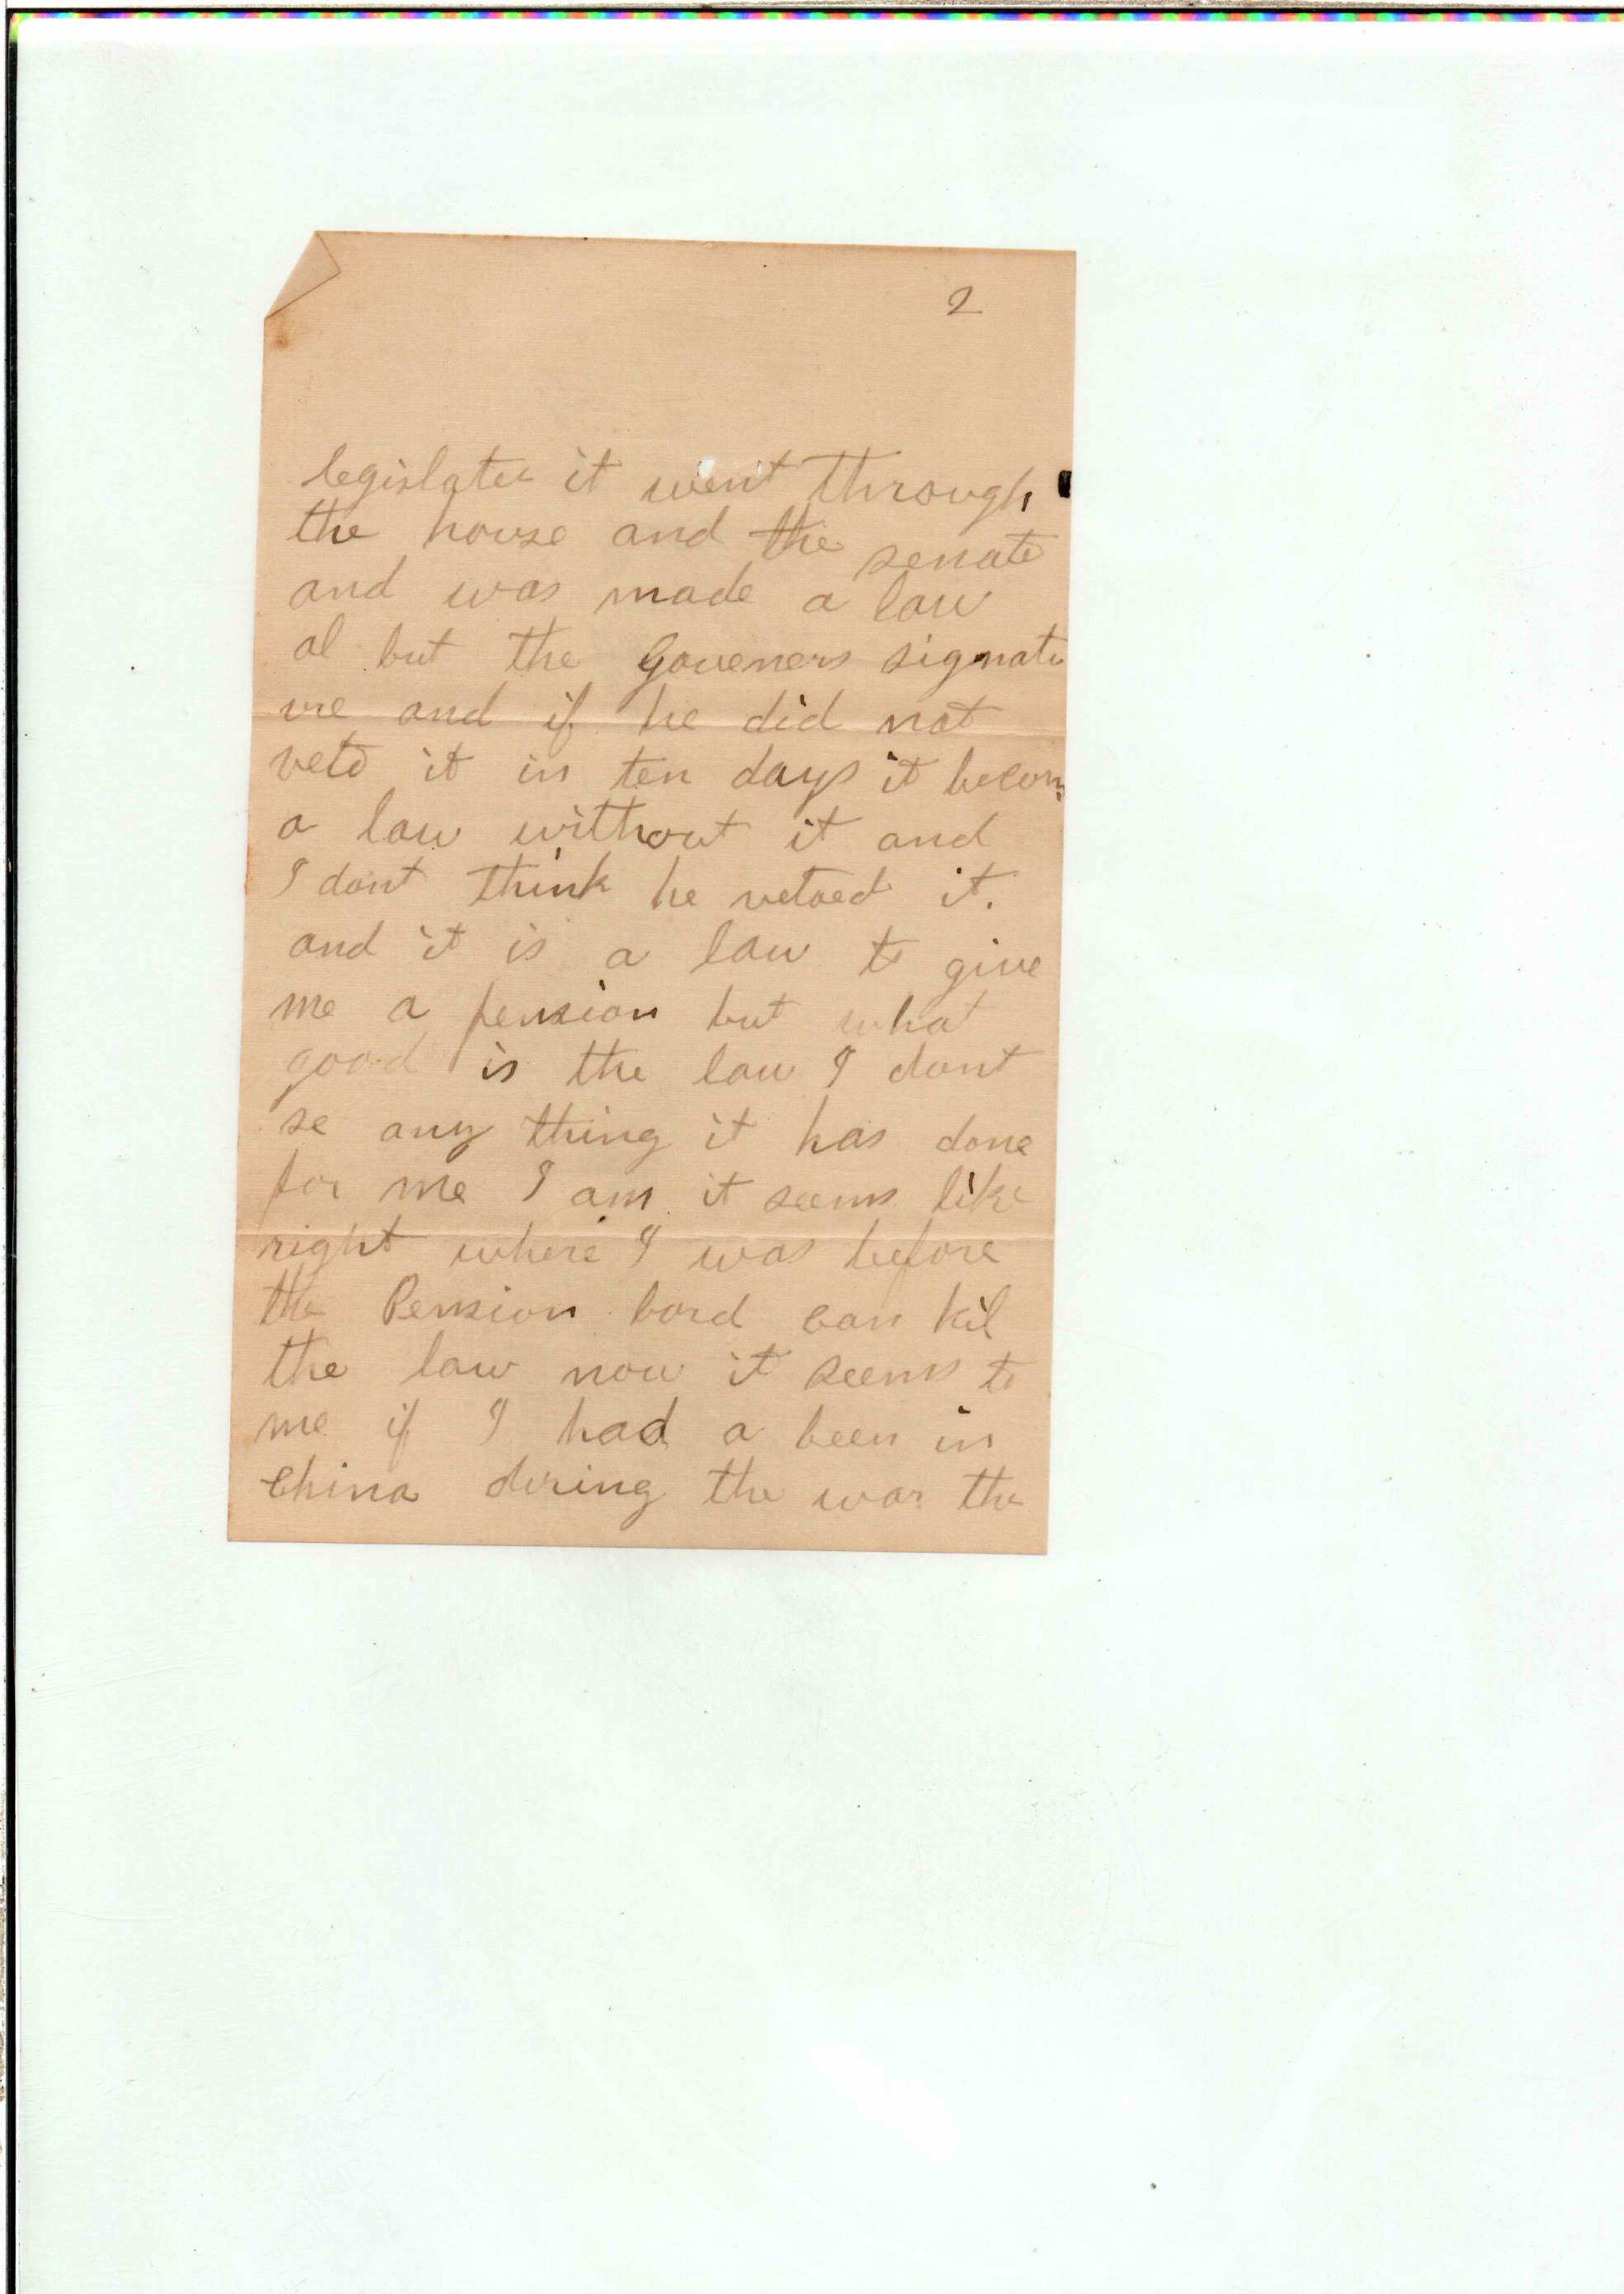 2
legislater it went through
the house and the senate
and was made a law
al but the Goveners signatu
ure and if he did not
veto it in ten days it becom
a law without it and
I dont think he vetoed it.
and it is a law to give
me a pension but what
good is the law I dont
se any thing it has done
for me I am it seems like
right where I was before
the Pension bord can kil
the law now it seems to
me if I had a been in
China during the war the